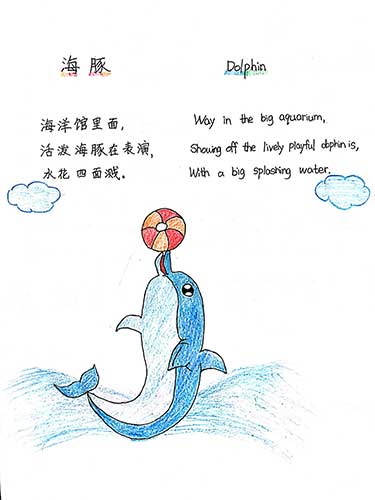 海豚
Dolphin
海洋馆里面,
活泼海豚在表演,
水花四面溅。
Way in the big aquarium,
Showing off the lively playful dophin is,
With a big splashing water.